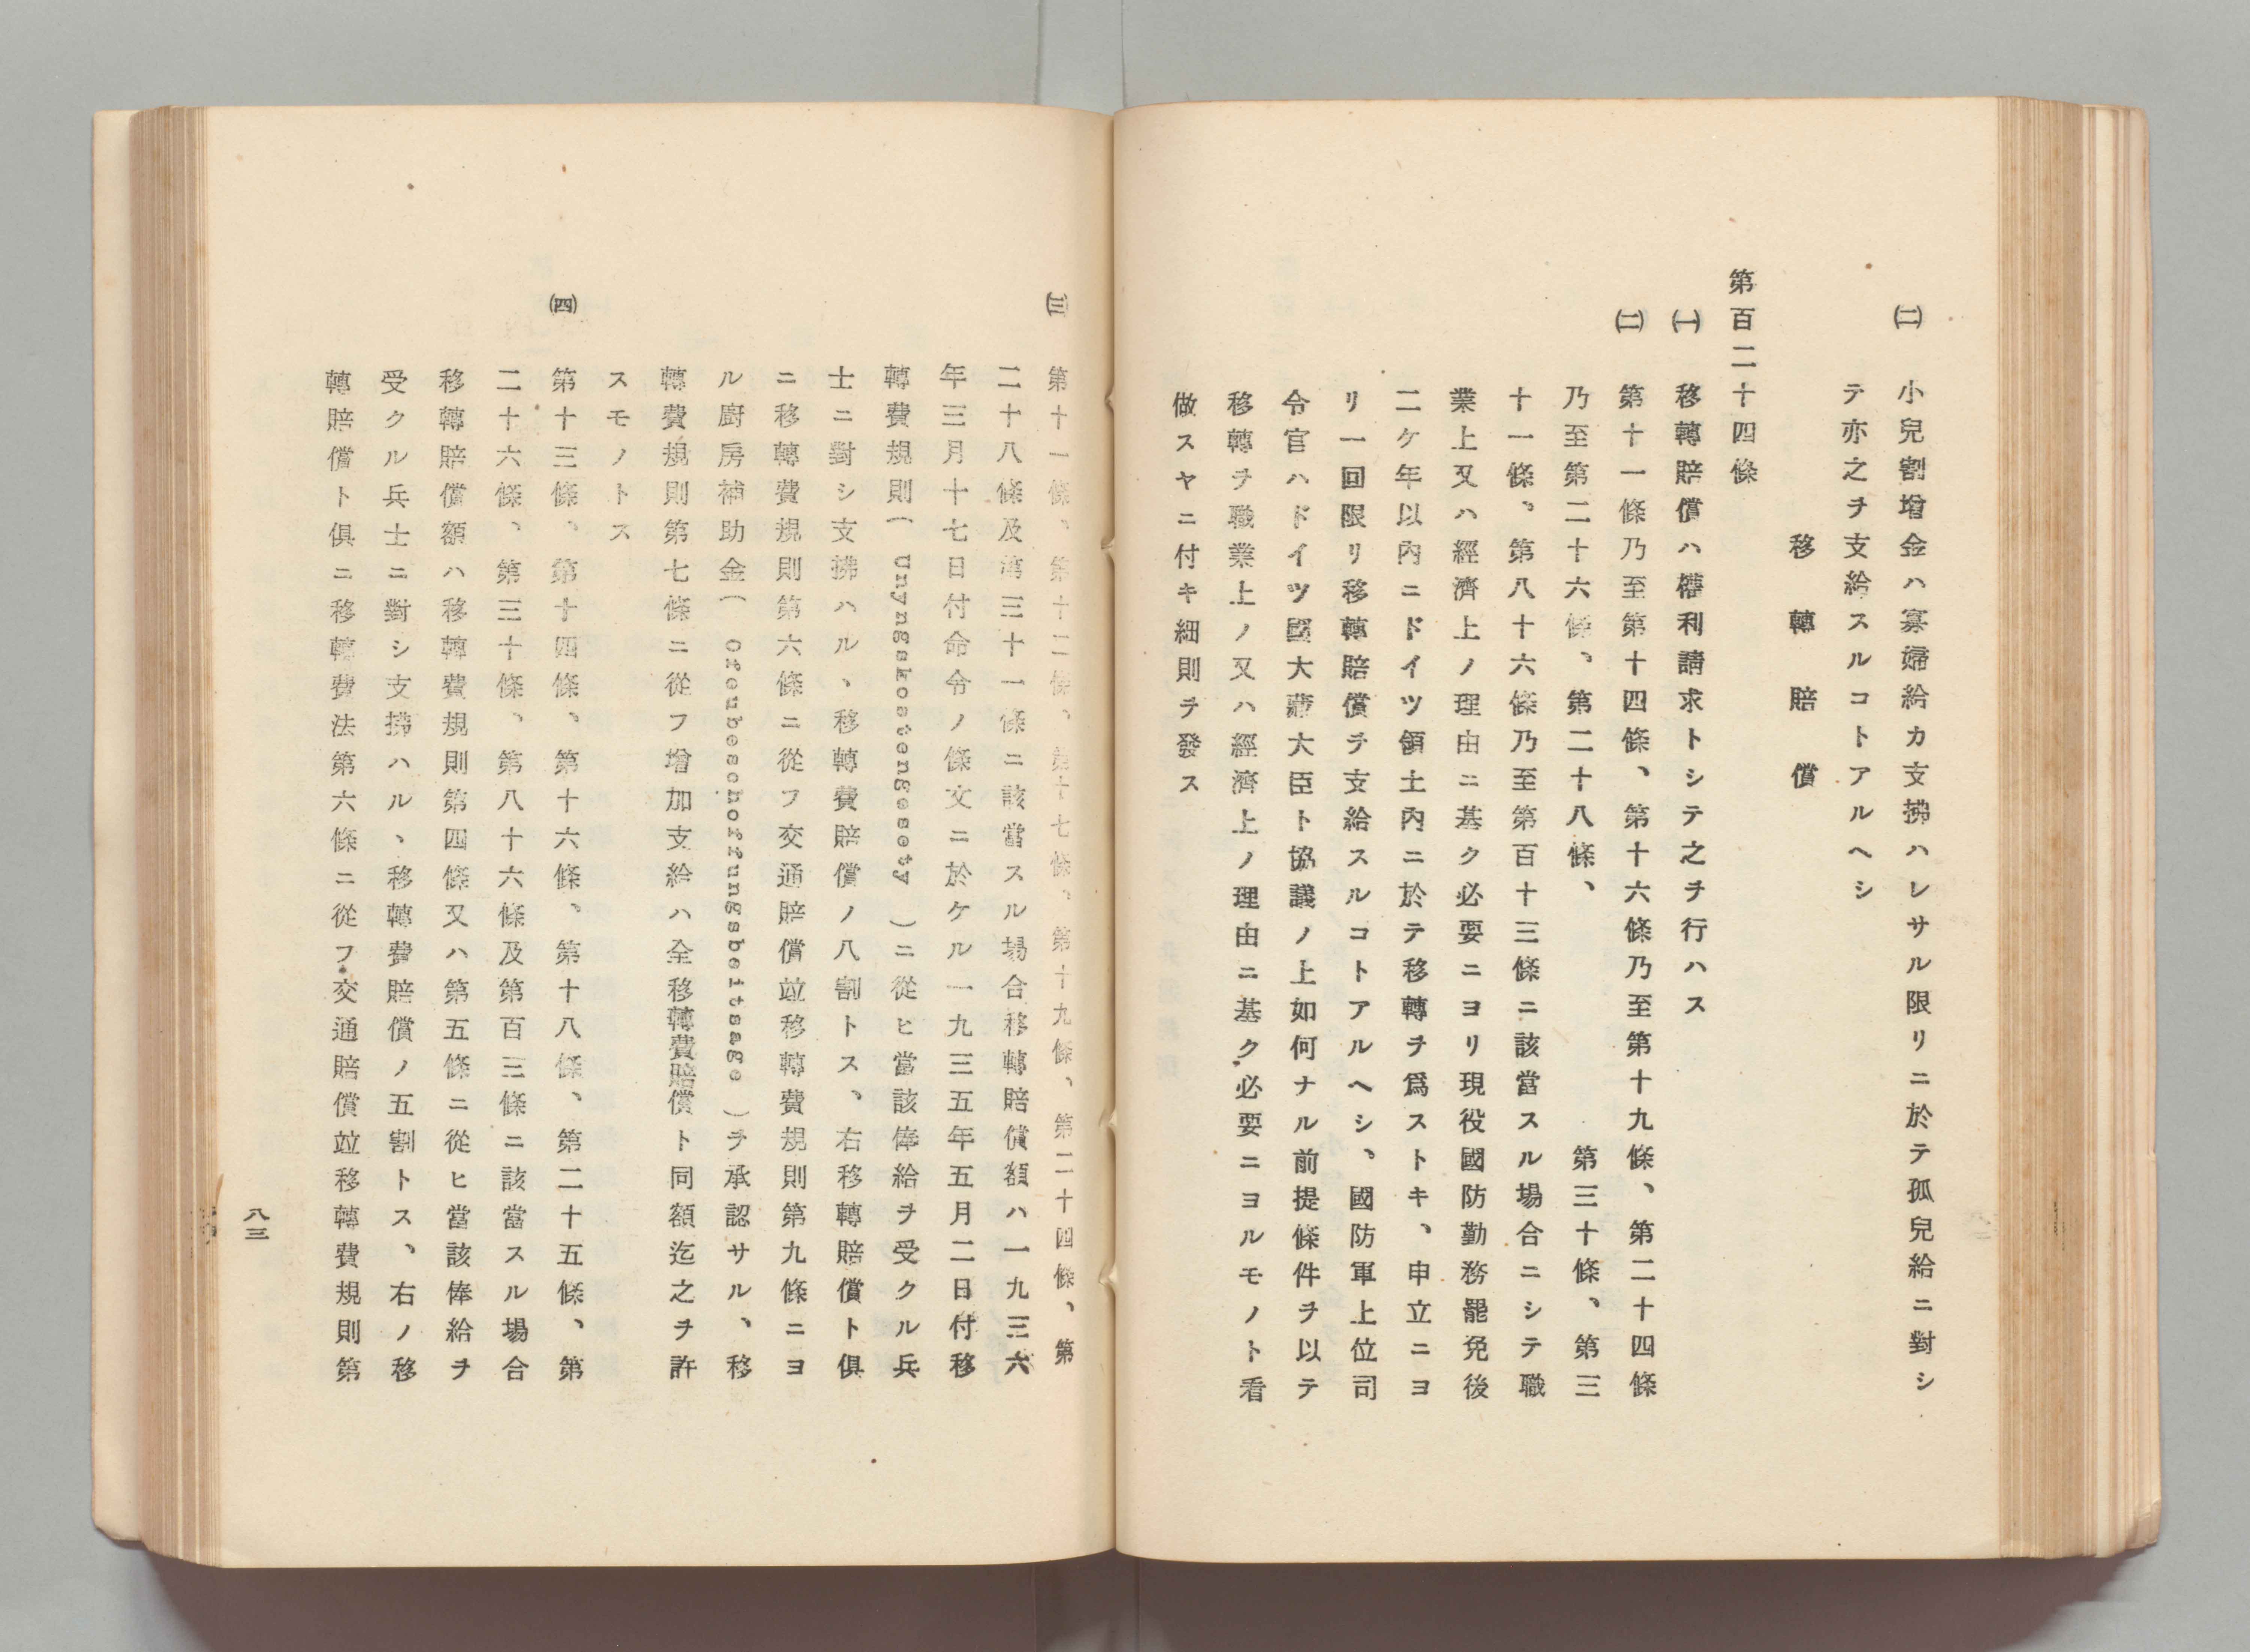 ㈡ 小兒割增金ハ寡婦給カ支拂ハレサル限リニ於テ孤兒給ニ對シ
テ亦之ヲ支給スルコトアルヘシ
移轉賠償
第百二十四條
㈠ 移轉賠償ハ權利請求トシテ之ヲ行ハス
㈡ 第十一條乃至第十四條、第十六條乃至第十九條、第二十四條
乃至第二十六條、第二十八條、第三十條、第三
十一條、第八十六條乃至第百十三條ニ該當スル場合ニシテ職
業上又ハ經濟上ノ理由ニ基ク必要ニヨリ現役國防勤務罷免後
二ケ年以內ニドイツ領土內ニ於テ移轉ヲ爲ストキ、申立ニヨ
リ一回限リ移轉賠償ヲ支給スルコトアルヘシ、國防軍上位司
令官ハドイツ國大藏大臣ト協議ノ上如何ナル前提條件ヲ以テ
移轉ヲ職業上ノ又ハ經濟上ノ理由ニ基ク必要ニヨルモノト看
做スヤニ付キ細則ヲ發ス
㈢ 第十一條、第十二條、第十七條、第十九條、第二十四條、第
二十八條及第三十一條ニ該當スル場合移轉賠償額ハ一九三六
年三月十七日付命令ノ條文ニ於ケル一九三五年五月二日付移
轉費規則( Unyngskostengesety )ニ從ヒ當該俸給ヲ受クル兵
士ニ對シ支拂ハル、移轉費賠償ノ八割トス、右移轉賠償ト俱
ニ移轉費規則第六條ニ從フ交通賠償竝移轉費規則第九條ニヨ
ル廚房補助金( Ofenbeschoffungsbeitsage )ヲ承認サル、移
轉費規則第七條ニ從フ增加支給ハ全移轉費賠償ト同額迄之ヲ許
スモノトス
㈣ 第十三條、第十四條、第十六條、第十八條、第二十五條、第
二十六條、第三十條、第八十六條及第百三條ニ該當スル場合
移轉賠償額ハ移轉費規則第四條又ハ第五條ニ從ヒ當該俸給ヲ
受クル兵士ニ對シ支拂ハル、移轉費賠償ノ五割トス、右ノ移
轉賠償ト俱ニ移轉費法第六條ニ從フ交通賠償竝移轉費規則第
八三